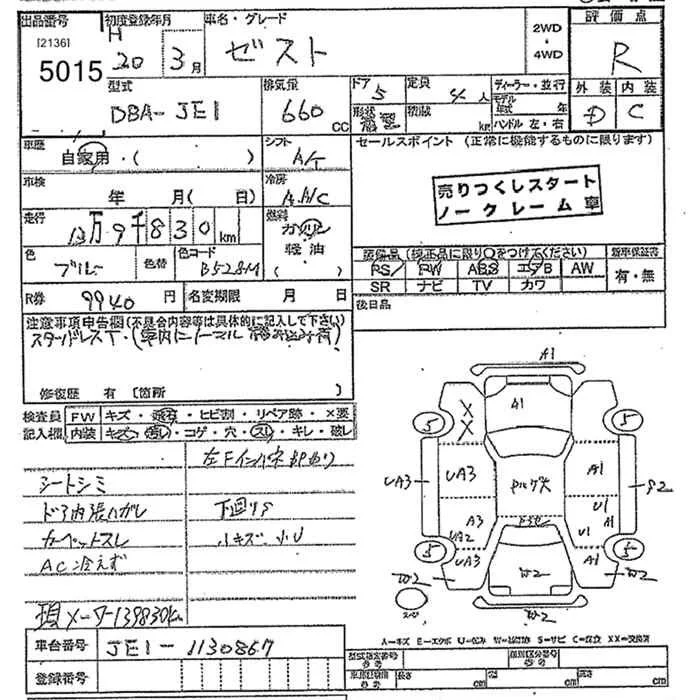 出品番号
[2136]
5015
初度登録年月
H
20 3月
車名・グレード
ゼスト
2WD
・
4WD
評価点
R
型式
DBA-JE1
排気量
660 CC
ドア 5
形状
定員 4人
積載 kg
ディーラー・並行
モデル年式 年
ハンドル 左・右
外装 内装
D C
車歴
自家用・( )
シフト
A/T
セールスポイント (正常に機能するものに限ります)
車検
年 月( 日)
冷房
A.A/C
売りつくしスタート
ノークレーム車
走行
13万9千830km
燃料
ガソリン
軽油
( )
色
ブルー
色替
色コード
B528M
装備品(純正品に限り○をつけてください)
新車保証書
PS PW ABS エアB AW
有・無
SR ナビ TV カワ
R券 9940円
名変期限 月 日
後日品
注意事項申告欄(不具合内容等は具体的に記入して下さい)
スタッドレスT・(車内にノーマル積み込み有)
修復歴 有 [箇所 ]
検査員記入欄
FW キズ・飛石・ヒビ割・リペア跡・×要
内装 キズ・汚れ・コゲ・穴・スレ・キレ・破レ
シートシミ
ドア内張ハガレ
カーペットスレ
AC冷えず
現メーター139830km
左Fインパネ部凹有り
下回りサ
小キズ小U
A1
A1
X
X
5
5
UA3
UA3
A1
P2
A3
UA2
U1
U1
A1
5
5
UA3
A1
W2
W2
W2
W2
A=キズ E=エクボ U=凹み W=補修跡 S=サビ C=腐食 XX=交換済
車台番号 JE1-1130867
登録番号
型式指定番号
参考
類別区分番号
参考
車両諸情報
参考
長さ cm
幅 cm
高さ cm